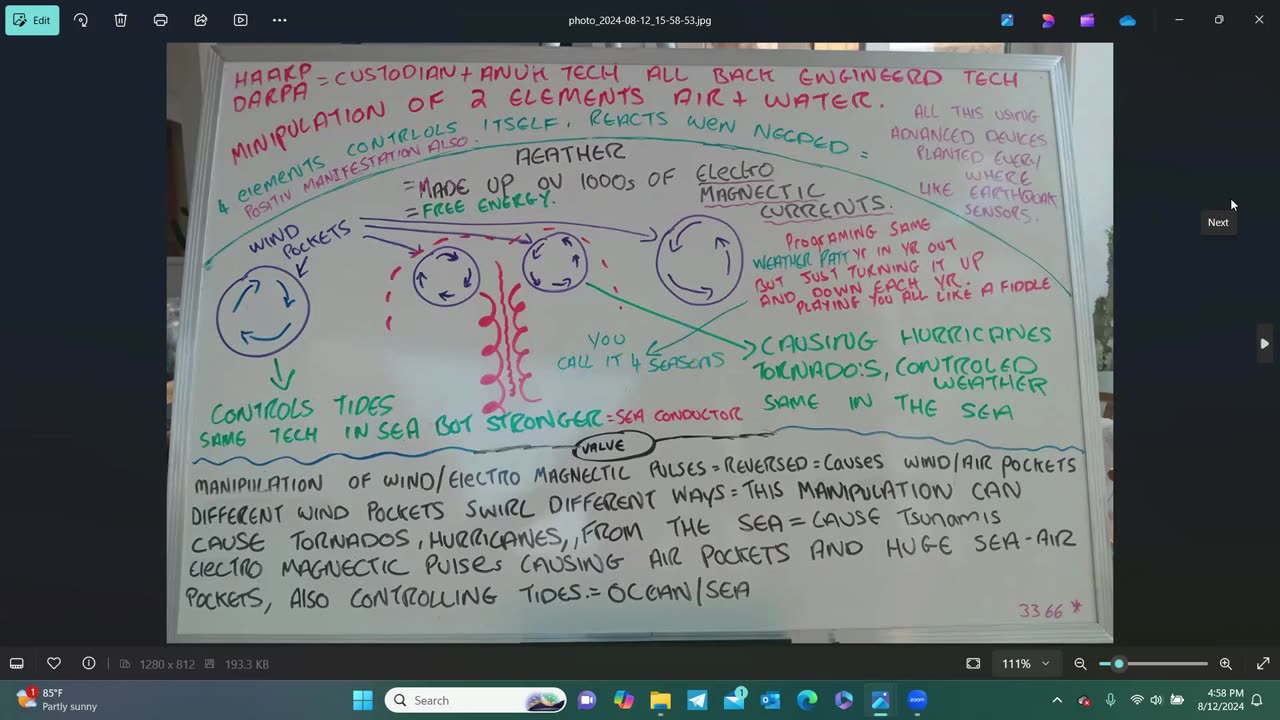 Edit
photo_2024-08-12_15-58-53.jpg
HAARP = CUSTODIAN + ANUK TECH ALL BACK ENGINEERD TECH
DARPA
MINIPULATION OF 2 ELEMENTS AIR + WATER.
4 ELEMENTS CONTRLOLS ITSELF. REACTS WEN NEEDED =
POSITIV MANIFESTATION ALSO.
ALL THIS USING
ADVANCED DEVICES
PLANTED EVERY
WHERE
LIKE EARTHQUAK
SENSORS.
AEATHER
= MADE UP OV 1000s OF ELECTRO
MAGNECTIC
CURRENTS.
= FREE ENERGY.
WIND
POCKETS
PROGRAMING SAME
WEATHER PATT YR IN YR OUT
BUT JUST TURNING IT UP
AND DOWN EACH YR.
PLAYING YOU ALL LIKE A FIDDLE
YOU
CALL IT 4 SEASONS
CAUSING HURRICANES
TORNADO'S, CONTROLED
WEATHER
SAME IN THE SEA
CONTROLS TIDES
SAME TECH IN SEA BOT STRONGER = SEA CONDUCTOR
VALVE
MANIPULATION OF WIND/ELECTRO MAGNECTIC PULSES = REVERSED = CAUSES WIND/AIR POCKETS
DIFFERENT WIND POCKETS SWIRL DIFFERENT WAYS = THIS MANIPULATION CAN
CAUSE TORNADOS, HURRICANES,, FROM THE SEA = CAUSE TSUNAMIS
ELECTRO MAGNECTIC PULSES CAUSING AIR POCKETS AND HUGE SEA-AIR
POCKETS, ALSO CONTROLLING TIDES.= OCEAN/SEA
3366 *
Next
1280 x 812
193.3 KB
111%
1
85°F
Partly sunny
Search
1
zoom
4:58 PM
8/12/2024